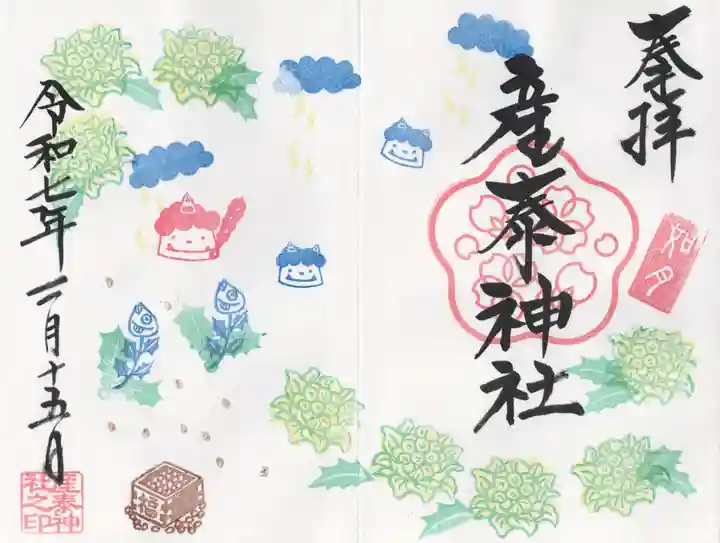 奉拝
如月
産泰神社
令和七年二月十五日
産泰神
社之印
福